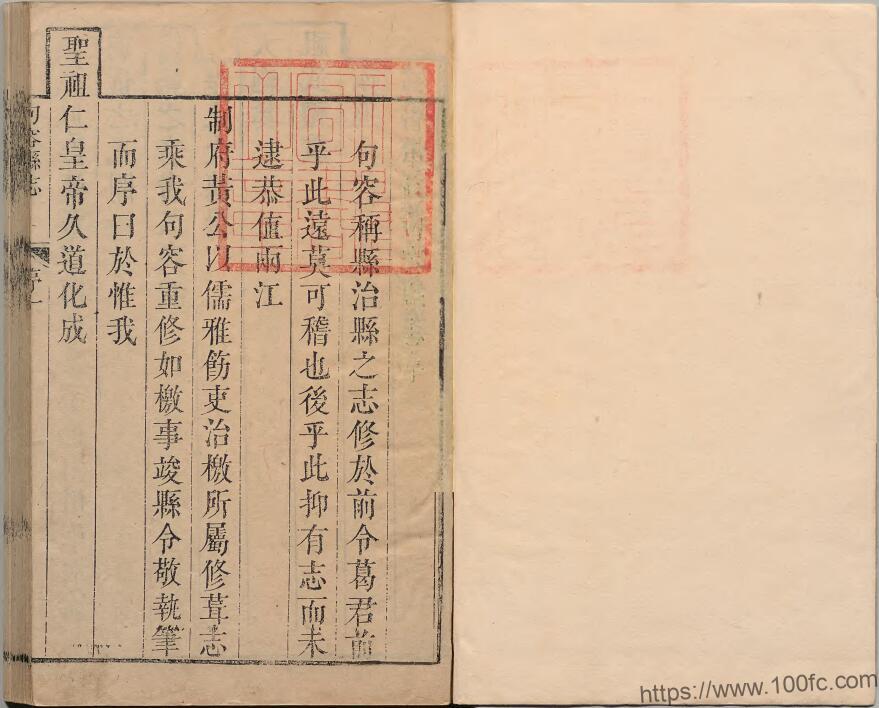 句容稱縣治縣之志修於前令葛君前
乎此遠莫可稽也後乎此抑有志而未
逮恭值兩江
制府黃公以儒雅飭吏治檄所屬修葺志
乘我句容重修如檄事竣縣令敬執筆
而序曰於惟我
聖祖仁皇帝久道化成
句容縣志
序一
https://www.100fc.com